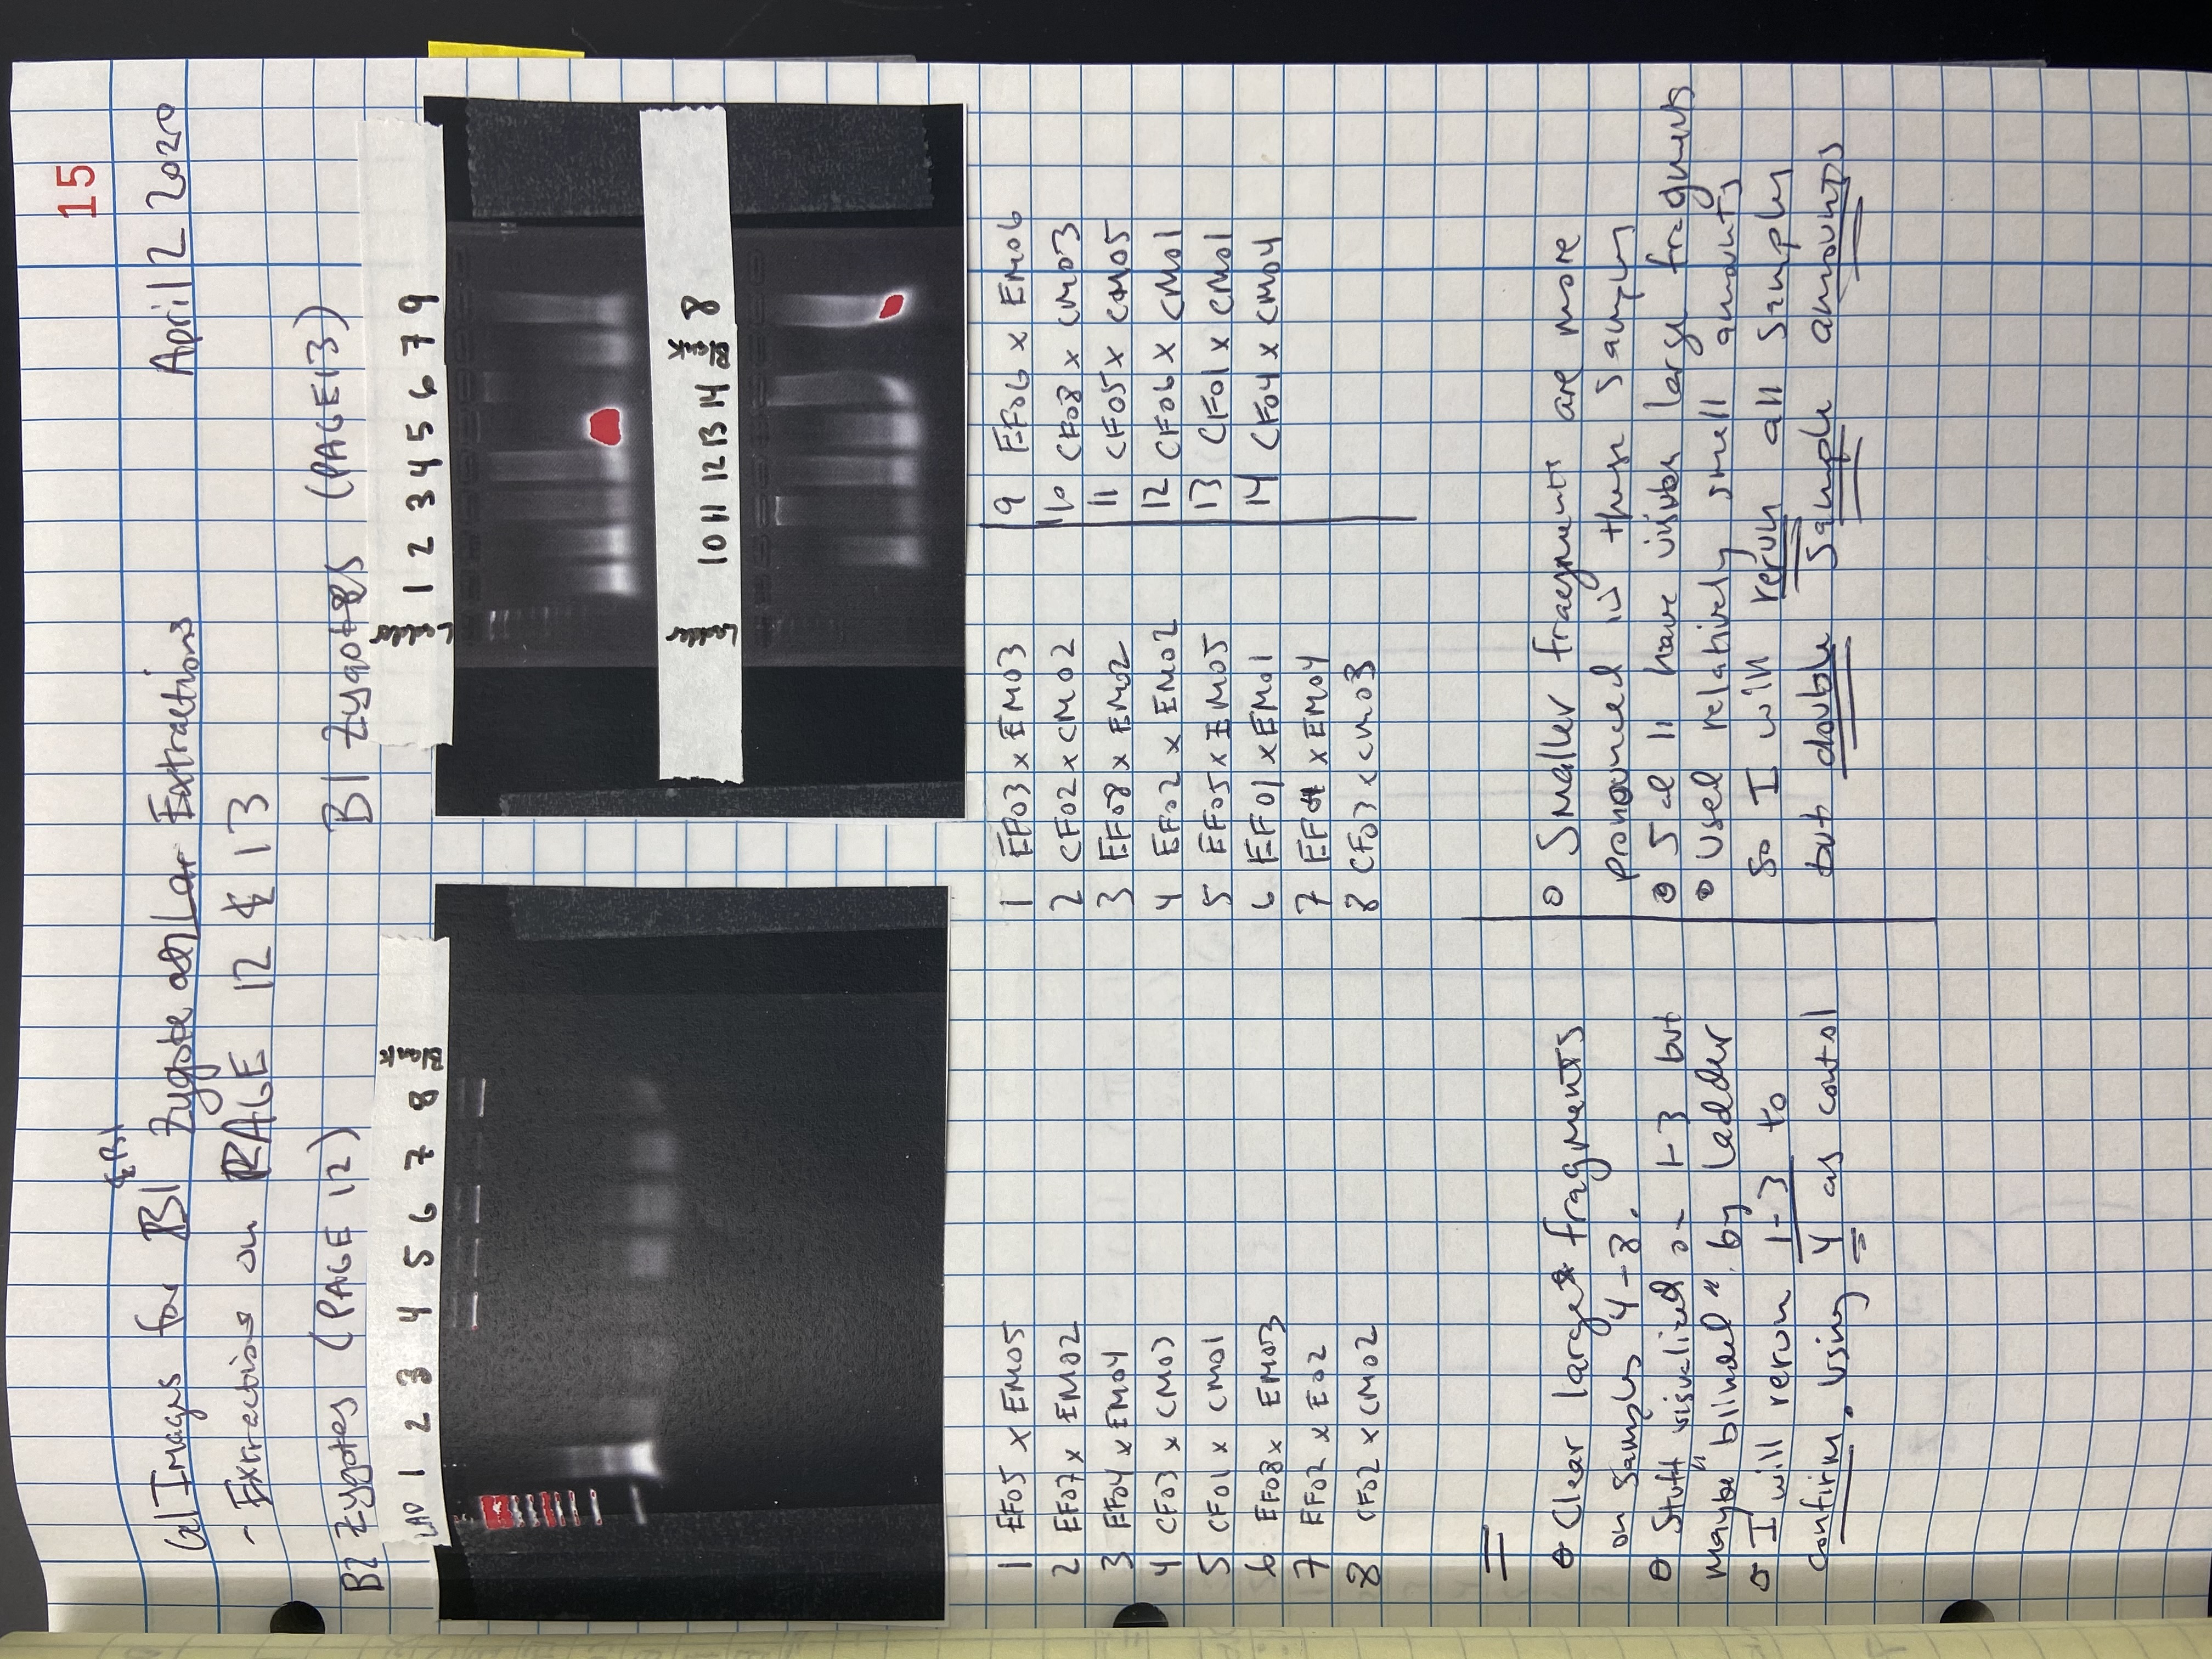 15
& B1
Gel Images for B1 Zygote Extractions April 2 2020
- Extractions on PAGE 12 & 13
B2 Zygotes (PAGE 12)
B1 Zygotes (PAGE 13)
LAD 1 2 3 4 5 6 7 8 Blank
Ladder 1 2 3 4 5 6 7 9
Ladder 10 11 12 13 14 Blank 8
1 EF05 x EM05
2 EF07 x EM02
3 EF04 x EM04
4 CF03 x CM03
5 CF01 x CM01
6 EF08 x EM03
7 EF02 x E02
8 CF02 x CM02
1 EF03 x EM03
2 CF02 x CM02
3 EF08 x EM02
4 EF02 x EM02
5 EF05 x EM05
6 EF01 x EM01
7 EF04 x EM04
8 CF03 x CM03
9 EF06 x EM06
10 CF08 x CM03
11 CF05 x CM05
12 CF06 x CM01
13 CF01 x CM01
14 CF04 x CM04
Clear large fragments
on samples 4-8.
Stuff visualized on 1-3 but
maybe "blinded" by ladder
I will rerun 1-3 to
confirm. Using 4 as control
Smaller fragments are more
pronounced in these samples
5 & 11 have visible large fragments
Used relatively small amounts
so I will rerun all samples
but double sample amounts